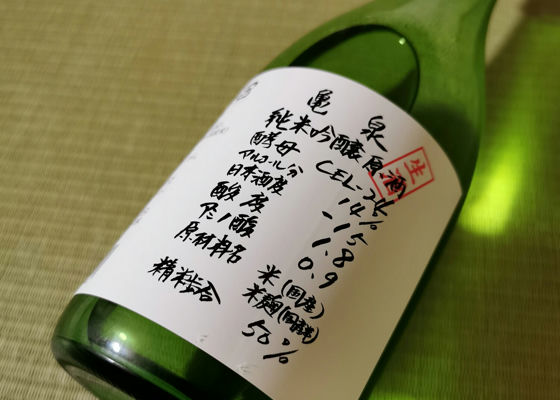 亀泉
純米吟醸原酒
生酒
酵母 CEL-24
アルコール分 14%
日本酒度 -15
酸度 1.8
アミノ酸 0.9
原材料名 米(国産)
米麹(国産米)
精米歩合 50%